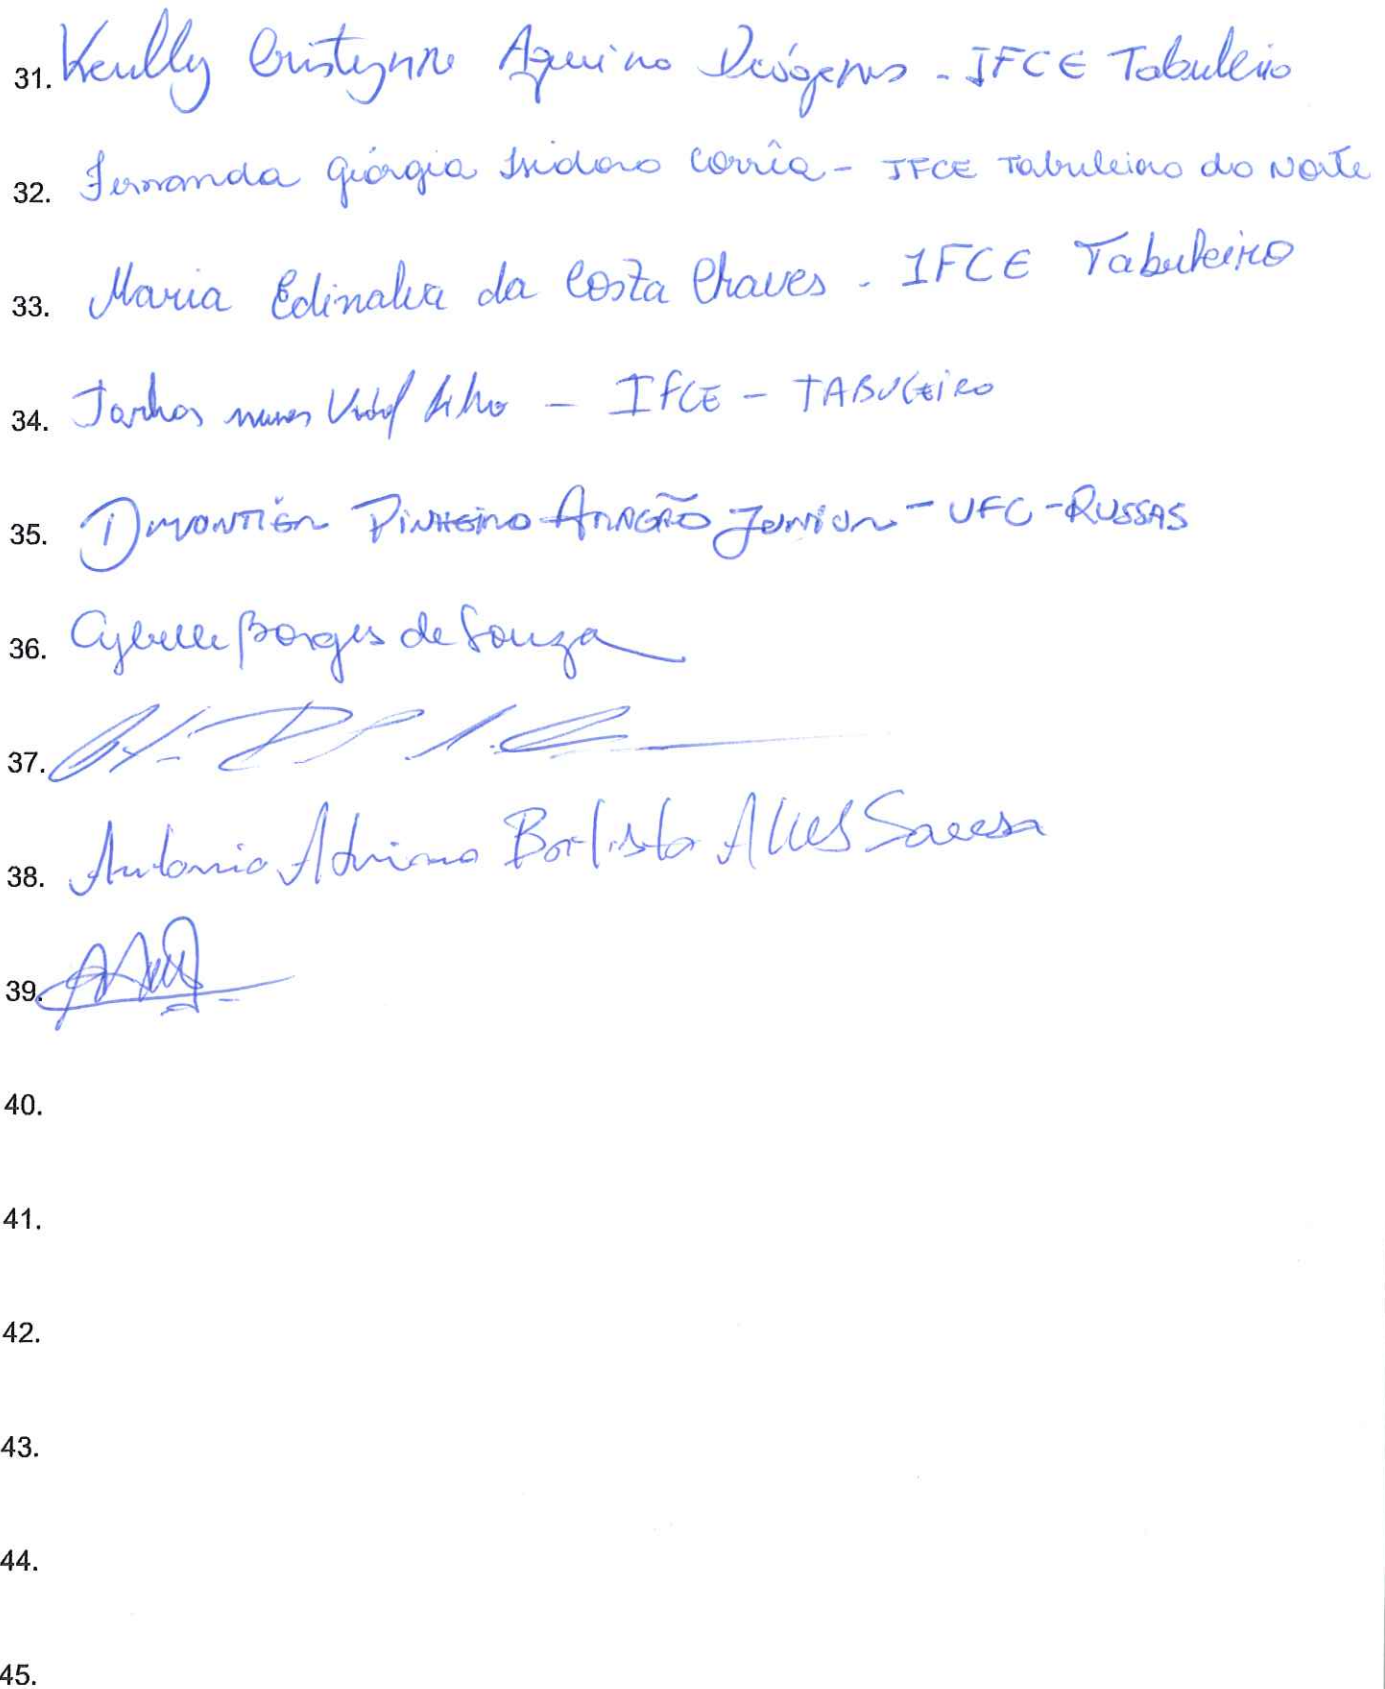 31. Keully Cristynne Aquino Diógenes - IFCE Tabuleiro
32. Fernanda Giórgia Isidoro Corrêa - IFCE Tabuleiro do Norte
33. Maria Edinalva da Costa Chaves - IFCE Tabuleiro
34. Nunes Vidal Filho - IFCE - TABULEIRO
35. DMONTIER PINHEIRO ARAGÃO JUNIOR - UFC - RUSSAS
36. Cybelle Borges de Souza
37.
38. Antonio Adriano Batista Alves
39.
40.
41.
42.
43.
44.
45.